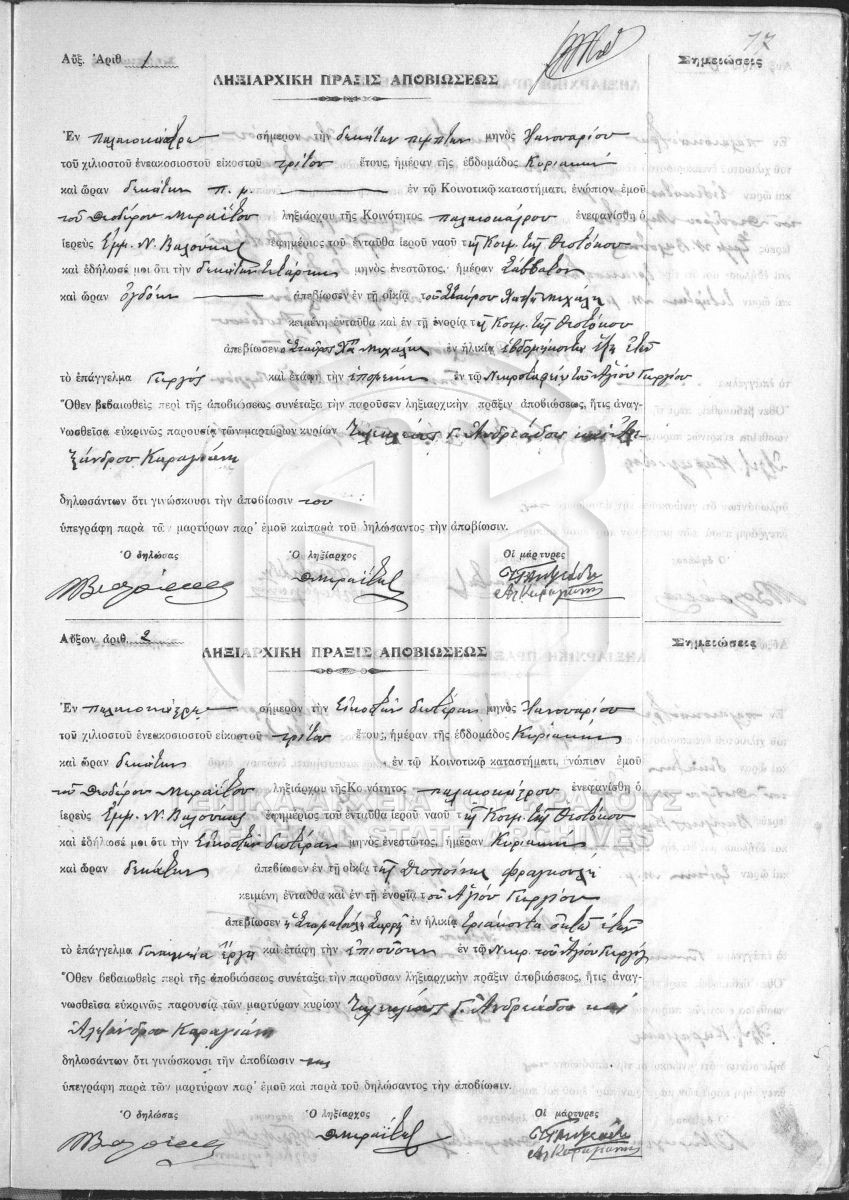 17
Αὔξ. Ἀριθ 1
Σημειώσεις
ΛΗΞΙΑΡΧΙΚΗ ΠΡΑΞΙΣ ΑΠΟΒΙΩΣΕΩΣ
Ἐν Παλαιοκάστρῳ σήμερον τὴν δεκάτην πέμπτην μηνὸς Ἰανουαρίου
τοῦ χιλιοστοῦ ἐνεακοσιοστοῦ εἰκοστοῦ τρίτου ἔτους, ἡμέραν τῆς ἑβδομάδος Κυριακὴν
καὶ ὥραν δεκάτην π. μ. ἐν τῷ Κοινοτικῷ καταστήματι, ἐνώπιον ἐμοῦ
τοῦ Θεοδώρου ληξιάρχου τῆς Κοινότητος Παλαιοκάστρου ἐνεφανίσθη ὁ
ἱερεὺς Ἐμμ. Ν. ἐφημέριος τοῦ ἐνταῦθα ἱεροῦ ναοῦ τῆς Κοιμ. τῆς Θεοτόκου
καὶ ἐδήλωσέ μοι ὅτι τὴν δεκάτην τετάρτην μηνὸς ἐνεστῶτος, ἡμέραν Σάββατον
καὶ ὥραν ὀγδόην ἀπεβίωσεν ἐν τῇ οἰκίᾳ τοῦ Σταύρου Χατζῆ Μιχάλη
κειμένη ἐνταῦθα καὶ ἐν τῇ ἐνορίᾳ τῆς Κοιμ. τῆς Θεοτόκου
ἀπεβίωσεν ὁ Σταῦρος Χα Μιχάλης ἐν ἡλικίᾳ ἑβδομήκοντα ἓξ ἐτῶν
τὸ ἐπάγγελμα Γεωργὸς καὶ ἐτάφη τὴν ἑπομένην ἐν τῷ Νεκροταφείῳ τοῦ Ἁγίου Γεωργίου
Ὅθεν βεβαιωθεὶς περὶ τῆς ἀποβιώσεως συνέταξα τὴν παροῦσεν ληξιαρχικὴν πρᾶξιν ἀποβιώσεως, ἥτις ἀναγ-
νωσθεῖσα εὐκρινῶς παρουσίᾳ τῶν μαρτύρων κυρίων Γ. Ἀνδριάδου καὶ Ἀλε-
ξάνδρου Καραγιάννη
δηλωσάντων ὅτι γινώσκουσι τὴν ἀποβίωσιν του
ὑπεγράφη παρὰ τῶν μαρτύρων παρ' ἐμοῦ καὶ παρὰ τοῦ δηλώσαντος τὴν ἀποβίωσιν.
Ὁ δηλώσας Ὁ ληξίαρχος Οἱ μάρτυρες
Ἀλ Καραγιάννης
Αὔξων ἀριθ. 2
Σημειώσεις
ΛΗΞΙΑΡΧΙΚΗ ΠΡΑΞΙΣ ΑΠΟΒΙΩΣΕΩΣ
Ἐν Παλαιοκάστρῳ σήμερον τὴν εἰκοστὴν δευτέραν μηνὸς Ἰανουαρίου
τοῦ χιλιοστοῦ ἐνεακοσιοστοῦ εἰκοστοῦ τρίτου ἔτους, ἡμέραν τῆς ἑβδομάδος Κυριακὴν
καὶ ὥραν δεκάτην ἐν τῷ Κοινοτικῷ καταστήματι, ἐνώπιον ἐμοῦ
τοῦ Θεοδώρου ληξιάρχου τῆς Κοινότητος Παλαιοκάστρου ἐνεφανίσθη ὁ
ΓΕΝΙΚΑ ΑΡΧΕΙΑ ΤΟΥ ΚΡΑΤΟΥΣ
ἱερεὺς Ἐμμ. Ν. ἐφημέριος τοῦ ἐνταῦθα ἱεροῦ ναοῦ τῆς Κοιμ. τῆς Θεοτόκου
GENERAL STATE ARCHIVES
καὶ ἐδήλωσέ μοι ὅτι τὴν εἰκοστὴν δευτέραν μηνὸς ἐνεστῶτος, ἡμέραν Κυριακὴν
καὶ ὥραν δεκάτην ἀπεβίωσεν ἐν τῇ οἰκίᾳ τῆς Δεσποίνης Φραγκούλη
κειμένη ἐνταῦθα καὶ ἐν τῇ ἐνορίᾳ τοῦ Ἁγίου Γεωργίου
ἀπεβίωσεν ἡ ἐν ἡλικίᾳ τριάκοντα ὀκτὼ ἐτῶν
τὸ ἐπάγγελμα Γυναικεῖα ἔργα καὶ ἐτάφη τὴν ἐπιοῦσαν ἐν τῷ Νεκρ. τοῦ Ἁγίου Γεωργίου
Ὅθεν βεβαιωθεὶς περὶ τῆς ἀποβιώσεως συνέταξα τὴν παροῦσαν ληξιαρχικὴν πρᾶξιν ἀποβιώσεως, ἥτις ἀναγ-
νωσθεῖσα εὐκρινῶς παρουσίᾳ τῶν μαρτύρων κυρίων Γ. Ἀνδριάδου καὶ
Ἀλεξάνδρου Καραγιάννη
δηλωσάντων ὅτι γινώσκουσι τὴν ἀποβίωσιν της
ὑπεγράφη παρὰ τῶν μαρτύρων παρ' ἐμοῦ καὶ παρὰ τοῦ δηλώσαντος τὴν ἀποβίωσιν.
Ὁ δηλώσας Ὁ ληξίαρχος Οἱ μάρτυρες
Ἀλ Καραγιάννης